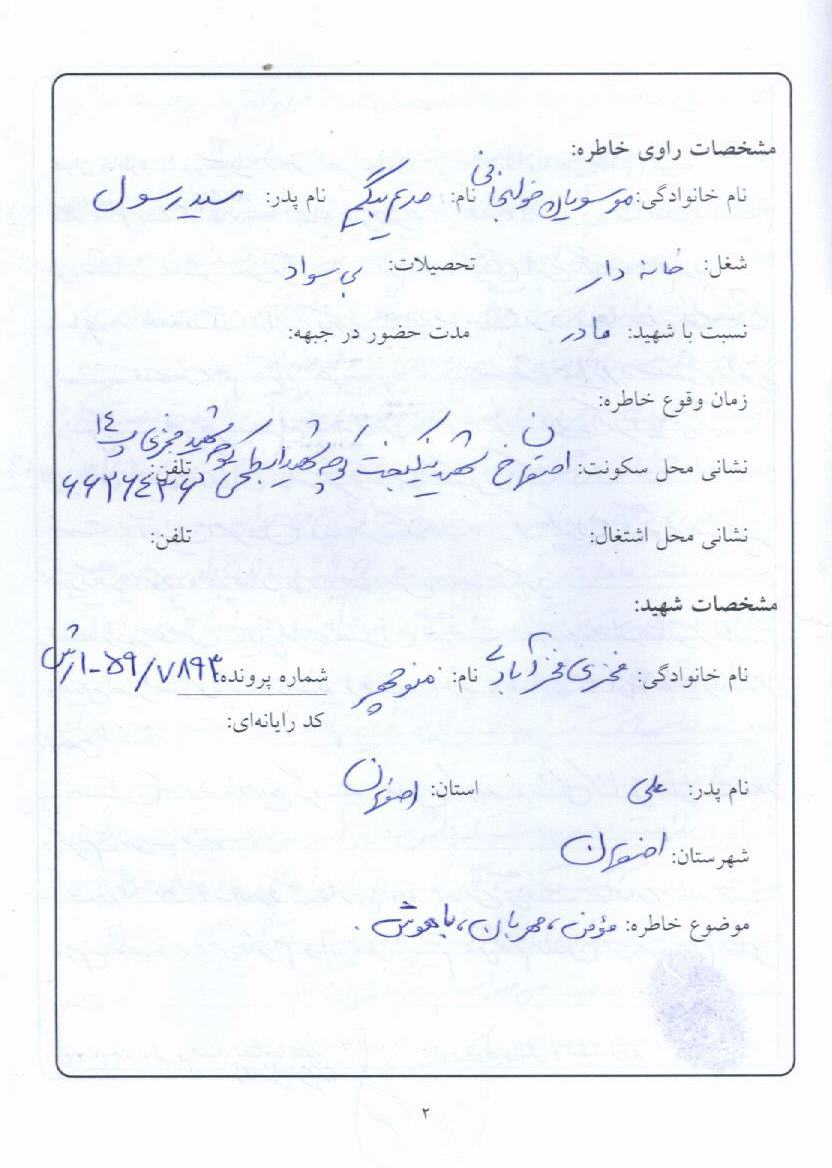 مشخصات راوی خاطره:
نام خانوادگی: موسویان خولنجانی نام: مریم بیگم نام پدر: سید رسول
شغل: خانه دار تحصیلات: بی سواد
نسبت با شهید: مادر مدت حضور در جبهه:
زمان وقوع خاطره:
نشانی محل سکونت: اصفهان خ شهید نیکبخت کوچه شهید کوچه شهید فخری پ ۱۴ تلفن: ۶۶۲۶۴۳۶
نشانی محل اشتغال: تلفن:
مشخصات شهید:
نام خانوادگی: فخری فخرآبادی نام: منوچهر شماره پرونده: ۵۹/۷۸۹۳-ارتش
کد رایانه‌ای:
نام پدر: علی استان: اصفهان
شهرستان: اصفهان
موضوع خاطره: مؤمن، مهربان، باهوش.
۲